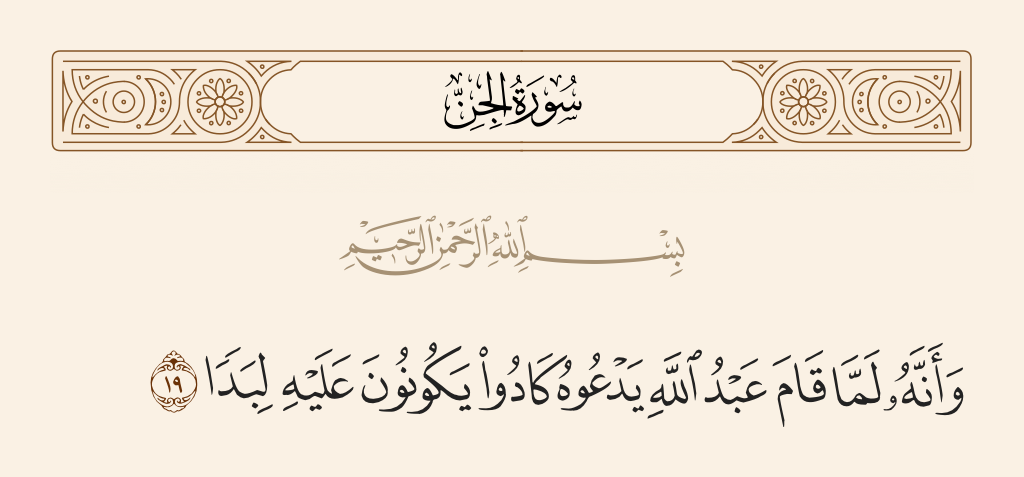 سُورَةُ الجِنِّ
بِسْمِ ٱللَّهِ ٱلرَّحْمَٰنِ ٱلرَّحِيمِ
وَأَنَّهُۥ لَمَّا قَامَ عَبْدُ ٱللَّهِ يَدْعُوهُ كَادُوا۟ يَكُونُونَ عَلَيْهِ لِبَدًا ١٩